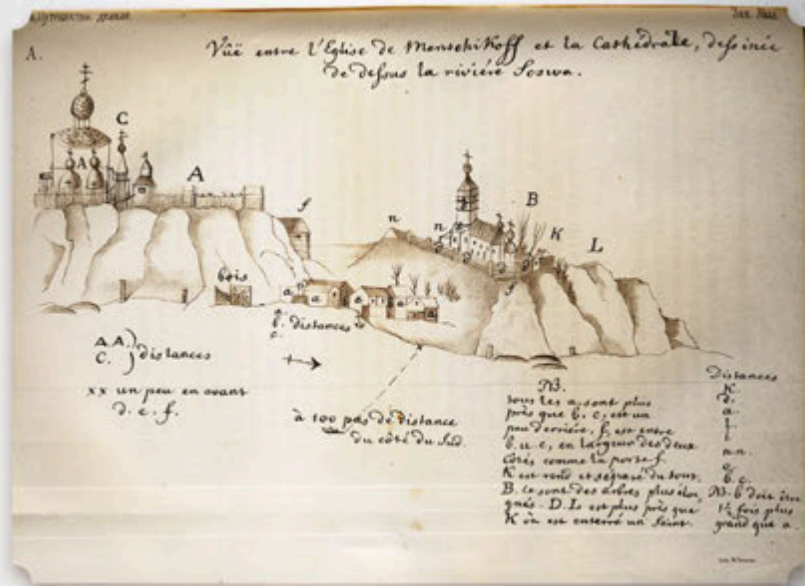 A.
Vüë entre l'Eglise de Menschikoff et la Cathédrale, dessinée
de dessus la riviére Soswa.
C
A
A
f
n
n
B
K
L
bois
a
a
a
a
b. distances
c.
A.A.
C. } distances
xx un peu en avant
d. e. f.
à 100 pas de distance
du côté du Sud.
NB.
tous les a, sont plus
près que b. c, est un
peu derriére, f. est entre
b. u c, en largeur des deux
côtés comme la porte f.
K est rond et séparé du tour.
B. ce sont des arbres plus éloi
gnés. D. L est plus près que
K où est enterré un Saint.
Distances
K.
d.
a.
f
i
n.n.
g.
b. c.
NB. b doit être
1½ fois plus
grand que a.